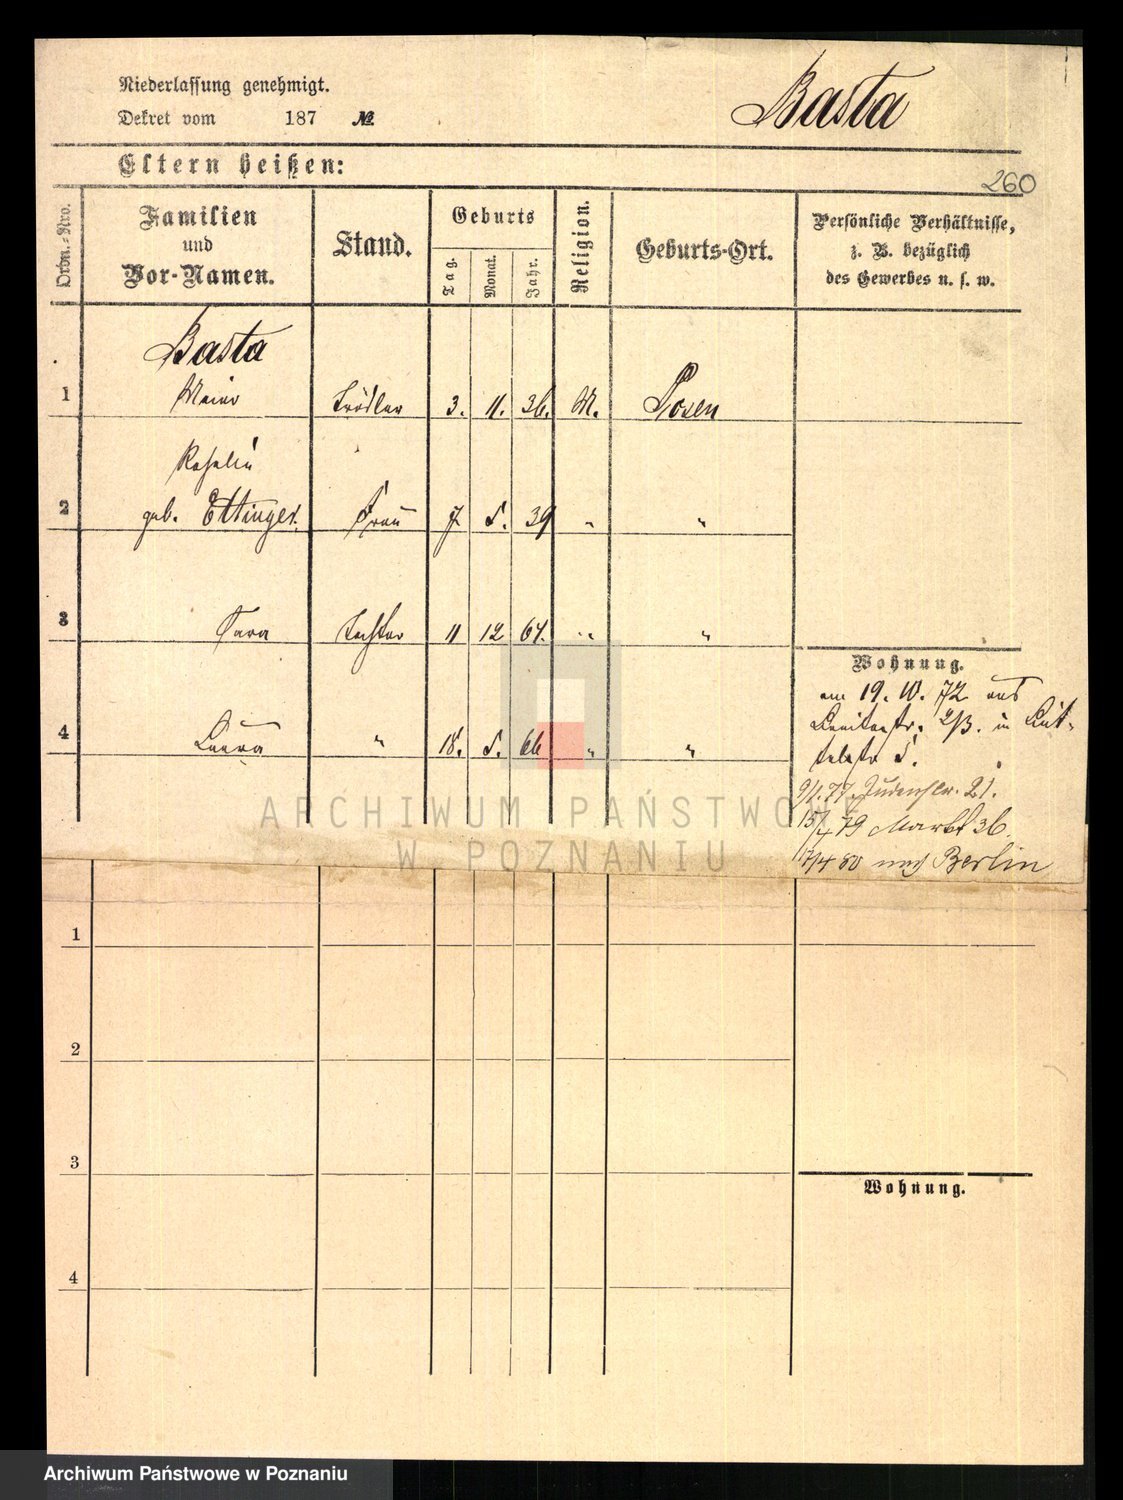 Niederlassung genehmigt.
Basta
Dekret vom 187 №
Eltern heißen:
260
Ordn.-Nro.
Familien
und
Vor-Namen.
Stand.
Geburts
Tag.
Monat.
Jahr.
Religion.
Geburts-Ort.
Persönliche Verhältnisse,
z. B. bezüglich
des Gewerbes u. s. w.
Basta
1 Meier Trödler 3. 11. 36. M. Posen
Rosalie
2 geb. Ettinger. Frau 7 5. 39 " "
3 Sara Tochter 11 12 64. " "
4 Laura " 18. 5. 66 " "
Wohnung.
am 19. 10. 72 aus
2/3. in
5.
77. Judenstr. 21.
79 Markt 36.
17/4 80 nach Berlin
ARCHIWUM PAŃSTWOWE
W POZNANIU
1
2
3
Wohnung.
4
Archiwum Państwowe w Poznaniu